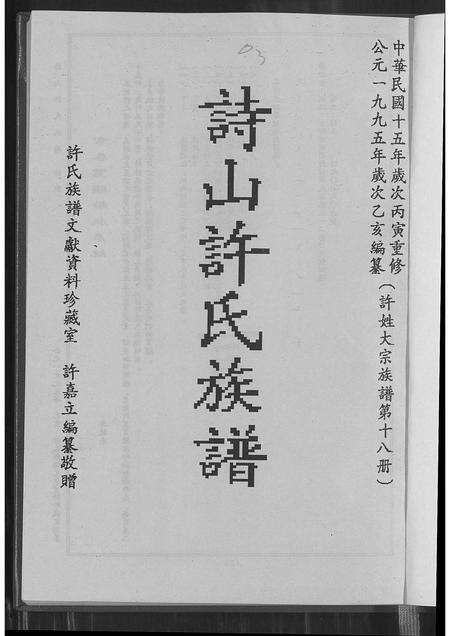 中華民國十五年歲次丙寅重修
公元一九九五年歲次乙亥編纂（許姓大宗族譜第十八册）
詩山許氏族譜
許氏族譜文獻資料珍藏室 許嘉立編纂敬贈